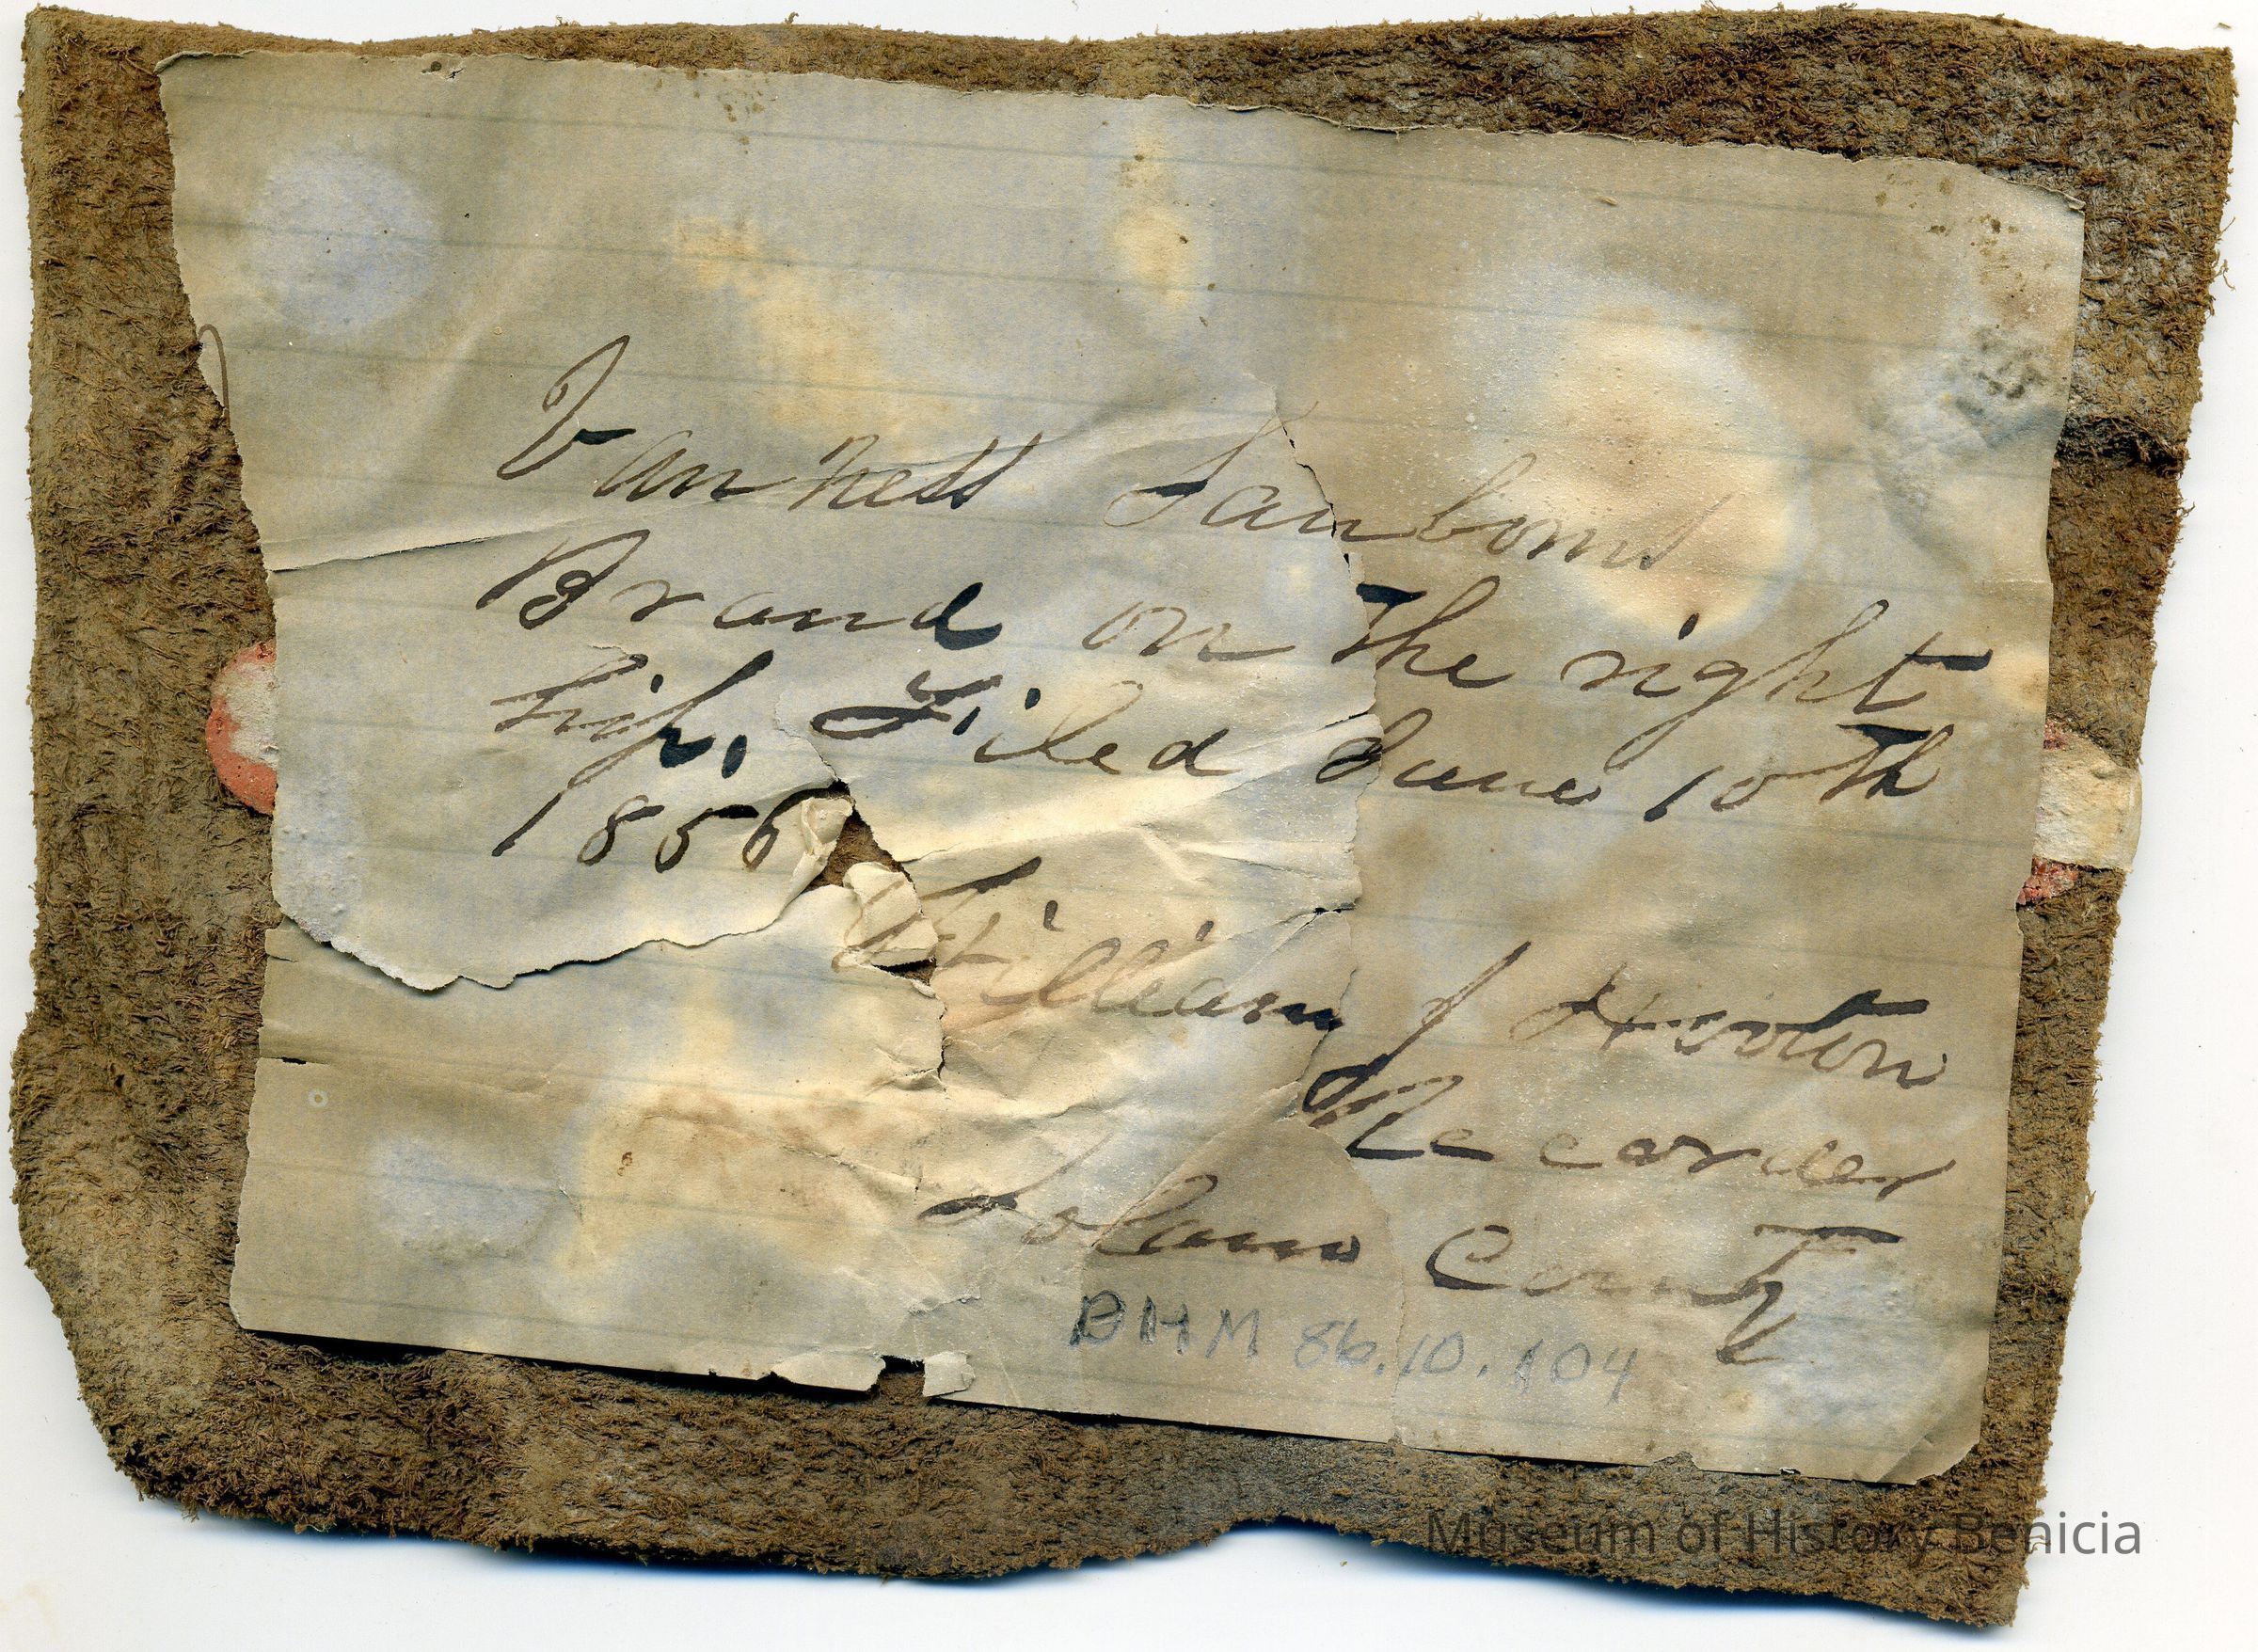 Van Ness Sanborns
Brand on the right
hip. Filed June 10th
1856
William J Hooton
Recorder
Solano County
BHM 86.10.104
Museum of History Benicia